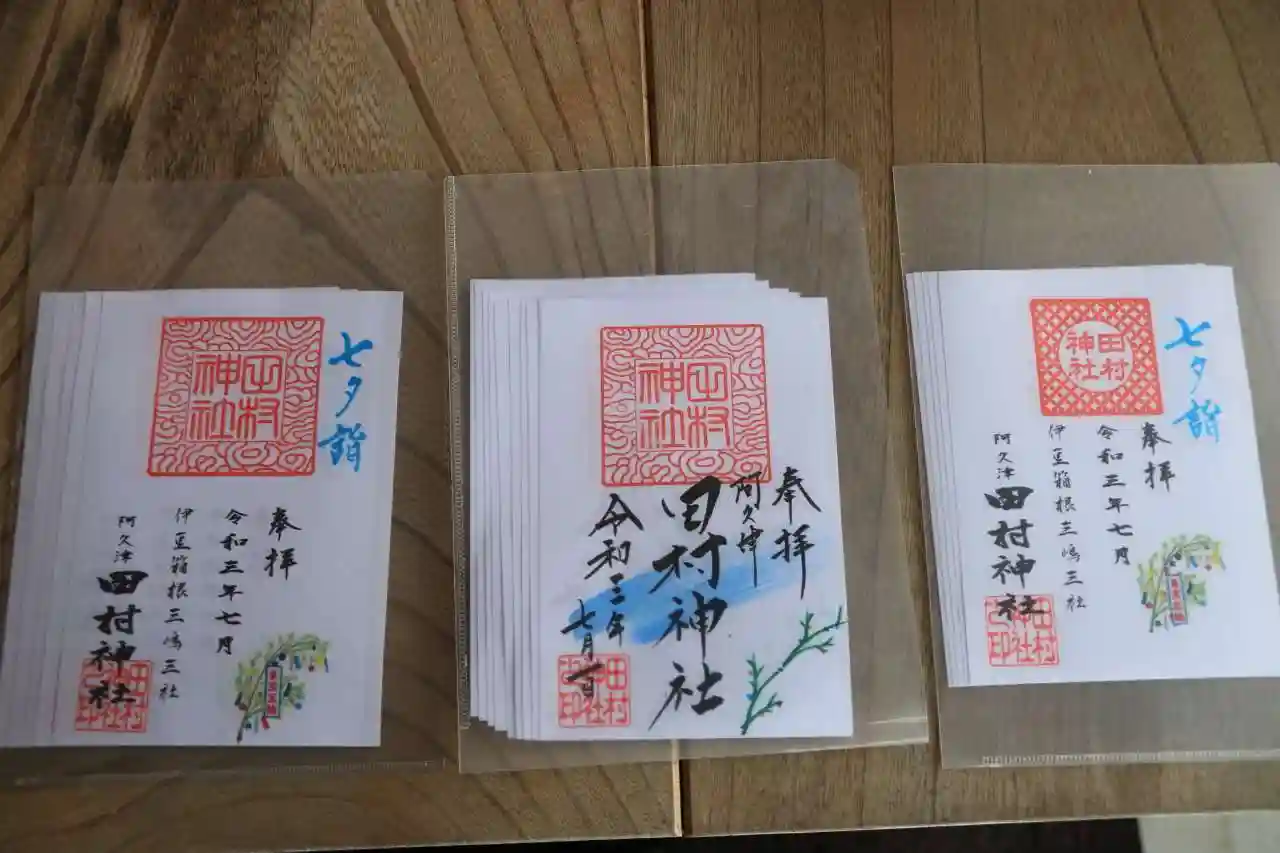 七夕詣
田村
神社
奉拝
令和三年七月
伊豆箱根三嶋三社
阿久津
田村神社
田村
神社
之印
田村
神社
奉拝
阿久津
田村神社
令和三年
七月一日
田村
神社
之印
七夕詣
田村
神社
奉拝
令和三年七月
伊豆箱根三嶋三社
阿久津
田村神社
田村
神社
之印